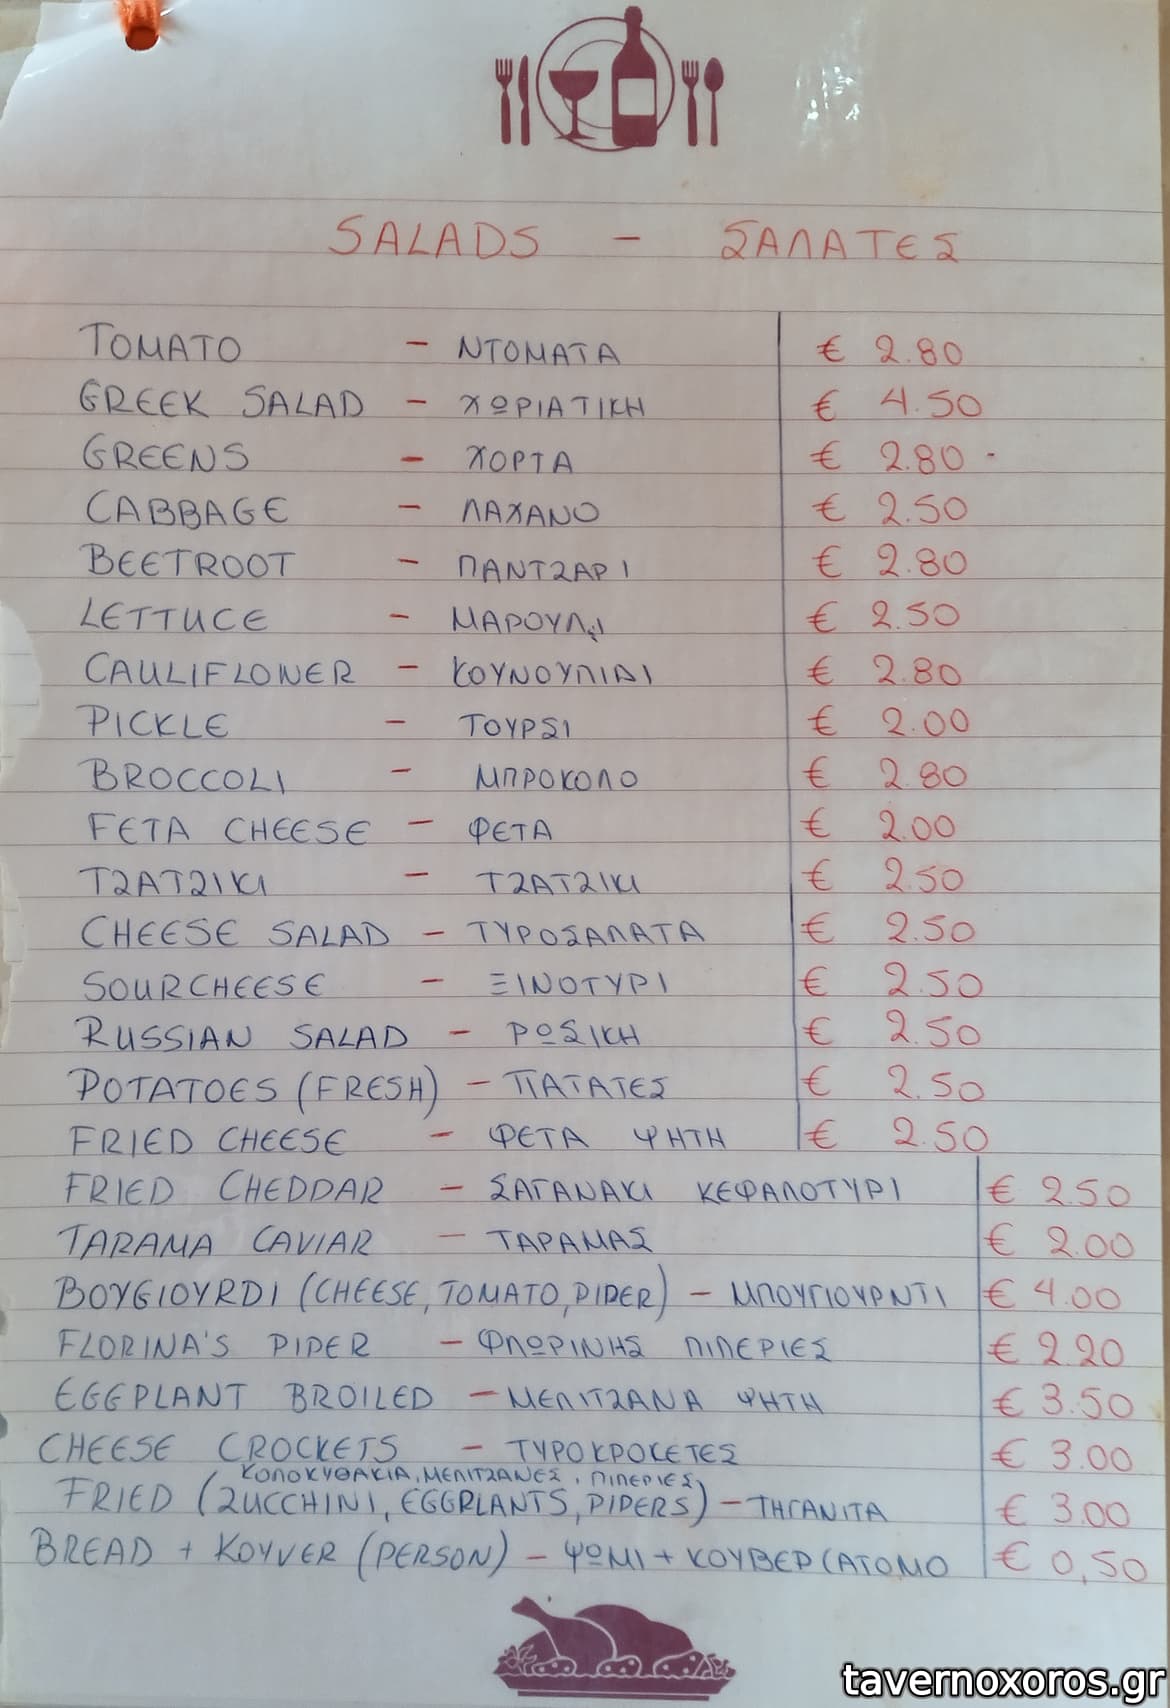 SALADS - ΣΑΛΑΤΕΣ
TOMATO - ΝΤΟΜΑΤΑ € 2.80
GREEK SALAD - ΧΩΡΙΑΤΙΚΗ € 4.50
GREENS - ΧΟΡΤΑ € 2.80
CABBAGE - ΛΑΧΑΝΟ € 2.50
BEETROOT - ΠΑΝΤΖΑΡΙ € 2.80
LETTUCE - ΜΑΡΟΥΛΙ € 2.50
CAULIFLOWER - ΚΟΥΝΟΥΠΙΔΙ € 2.80
PICKLE - ΤΟΥΡΣΙ € 2.00
BROCCOLI - ΜΠΡΟΚΟΛΟ € 2.80
FETA CHEESE - ΦΕΤΑ € 2.00
TZATZIKI - ΤΖΑΤΖΙΚΙ € 2.50
CHEESE SALAD - ΤΥΡΟΣΑΛΑΤΑ € 2.50
SOURCHEESE - ΞΙΝΟΤΥΡΙ € 2.50
RUSSIAN SALAD - ΡΩΣΙΚΗ € 2.50
POTATOES (FRESH) - ΠΑΤΑΤΕΣ € 2.50
FRIED CHEESE - ΦΕΤΑ ΨΗΤΗ € 2.50
FRIED CHEDDAR - ΣΑΓΑΝΑΚΙ ΚΕΦΑΛΟΤΥΡΙ € 2.50
TARAMA CAVIAR - ΤΑΡΑΜΑΣ € 2.00
BOYGIOYRDI (CHEESE, TOMATO, PIPER) - ΜΠΟΥΓΙΟΥΡΝΤΙ € 4.00
FLORINA'S PIPER - ΦΛΩΡΙΝΗΣ ΠΙΠΕΡΙΕΣ € 2.20
EGGPLANT BROILED - ΜΕΛΙΤΖΑΝΑ ΨΗΤΗ € 3.50
CHEESE CROCKETS - ΤΥΡΟΚΡΟΚΕΤΕΣ € 3.00
ΚΟΛΟΚΥΘΑΚΙΑ, ΜΕΛΙΤΖΑΝΕΣ, ΠΙΠΕΡΙΕΣ
FRIED (ZUCCHINI, EGGPLANTS, PIPERS) - ΤΗΓΑΝΙΤΑ € 3.00
BREAD + KOYVER (PERSON) - ΨΩΜΙ + ΚΟΥΒΕΡ (ΑΤΟΜΟ € 0,50
tavernoxoros.gr